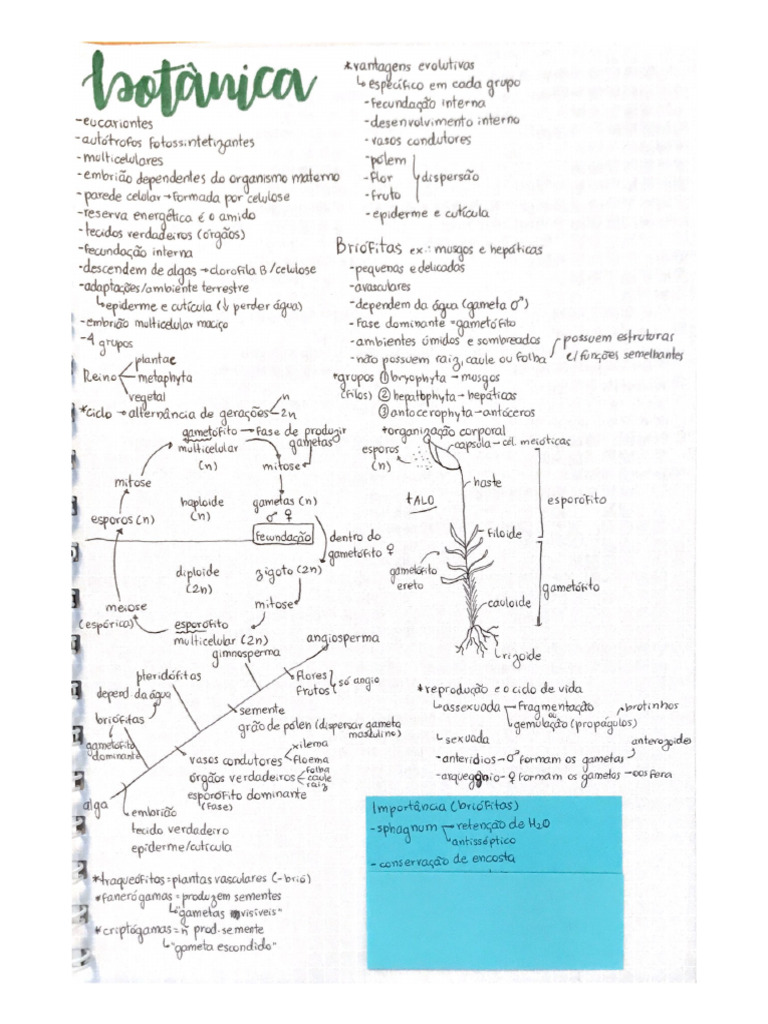 botânica
-eucariontes
-autótrofos fotossintetizantes
-multicelulares
-embrião dependentes do organismo materno
-parede celular→formada por celulose
-reserva energética é o amido
-tecidos verdadeiros (órgãos)
-fecundação interna
-descendem de algas→clorofila B/celulose
-adaptações/ambiente terrestre
↳epiderme e cutícula (↓ perder água)
-embrião multicelular maciço
-4 grupos
plantae
Reino metaphyta
vegetal
*ciclo → alternância de gerações n
2n
gametófito → fase de produzir
multicelular gametas
(n)
mitose
mitose
haploide
(n)
gametas (n)
♂ ♀
esporos (n)
fecundação
dentro do
gametófito ♀
diploide
(2n)
zigoto (2n)
mitose
meiose
(espórica)
esporófito
multicelular (2n)
angiosperma
gimnosperma
pteridófitas
flores
frutos só angio
depend. da água
semente
grão de pólen (dispersar gameta
masculino)
briófitas
gametófito
dominante
vasos condutores xilema
floema
órgãos verdadeiros folha
caule
raiz
esporófito dominante
(fase)
alga
embrião
tecido verdadeiro
epiderme/cutícula
*traqueófitas=plantas vasculares (-brió)
*fanerógamas=produzem sementes
↳"gametas visíveis"
*criptógamas=ñ prod. semente
↳"gameta escondido"
*vantagens evolutivas
↳específico em cada grupo
-fecundação interna
-desenvolvimento interno
-vasos condutores
-pólem
-flor dispersão
-fruto
-epiderme e cutícula
Briófitas ex.: musgos e hepáticas
-pequenas e delicadas
-avasculares
-dependem da água (gameta ♂)
-fase dominante=gametófito
-ambientes úmidos e sombreados
-não possuem raiz, caule ou folha
possuem estruturas
c/ funções semelhantes
*grupos ① bryophyta→musgos
(filos) ② hepatophyta→hepáticas
③ antocerophyta→antóceros
*organização corporal
capsola - cél. meióticas
esporos
(n)
haste
tALO
esporófito
filoide
gametófito
ereto
gametófito
cauloide
rizoide
*reprodução e o ciclo de vida
↳assexuada fragmentação
ou
gemulação (propágulos)
brotinhos
↳sexuada
-anterídios-♂ formam os gametas anterozoides
-arquegônio-♀ formam os gametas-oosfera
Importância (briófitas)
-sphagnum retenção de H2O
antisséptico
-conservação de encosta